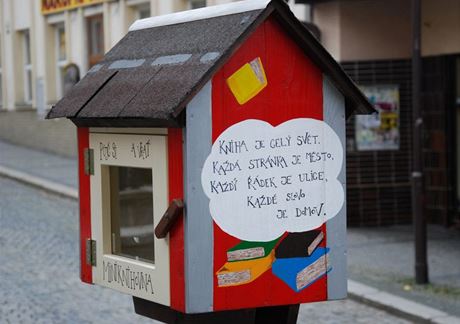 KNIHA JE CELÝ SVĚT.
KAŽDÁ STRÁNKA JE MĚSTO,
KAŽDÝ ŘÁDEK JE ULICE,
KAŽDÉ SLOVO
JE DOMOV.
MINIKNIHOVNA